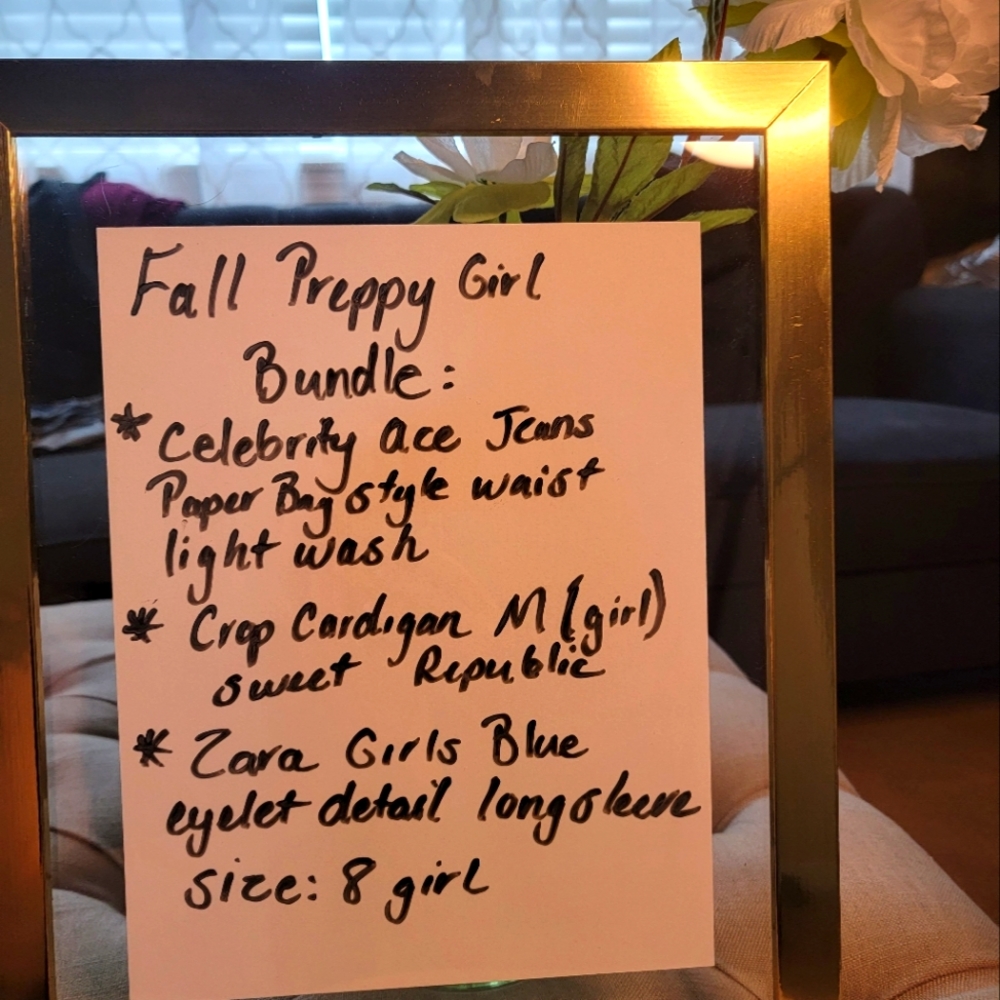 Fall Preppy Girl
Bundle:
* Celebrity Ace Jeans
Paper Bag style waist
light wash
* Crop Cardigan M (girl)
sweet Republic
* Zara Girls Blue
eyelet detail longsleeve
size: 8 girl